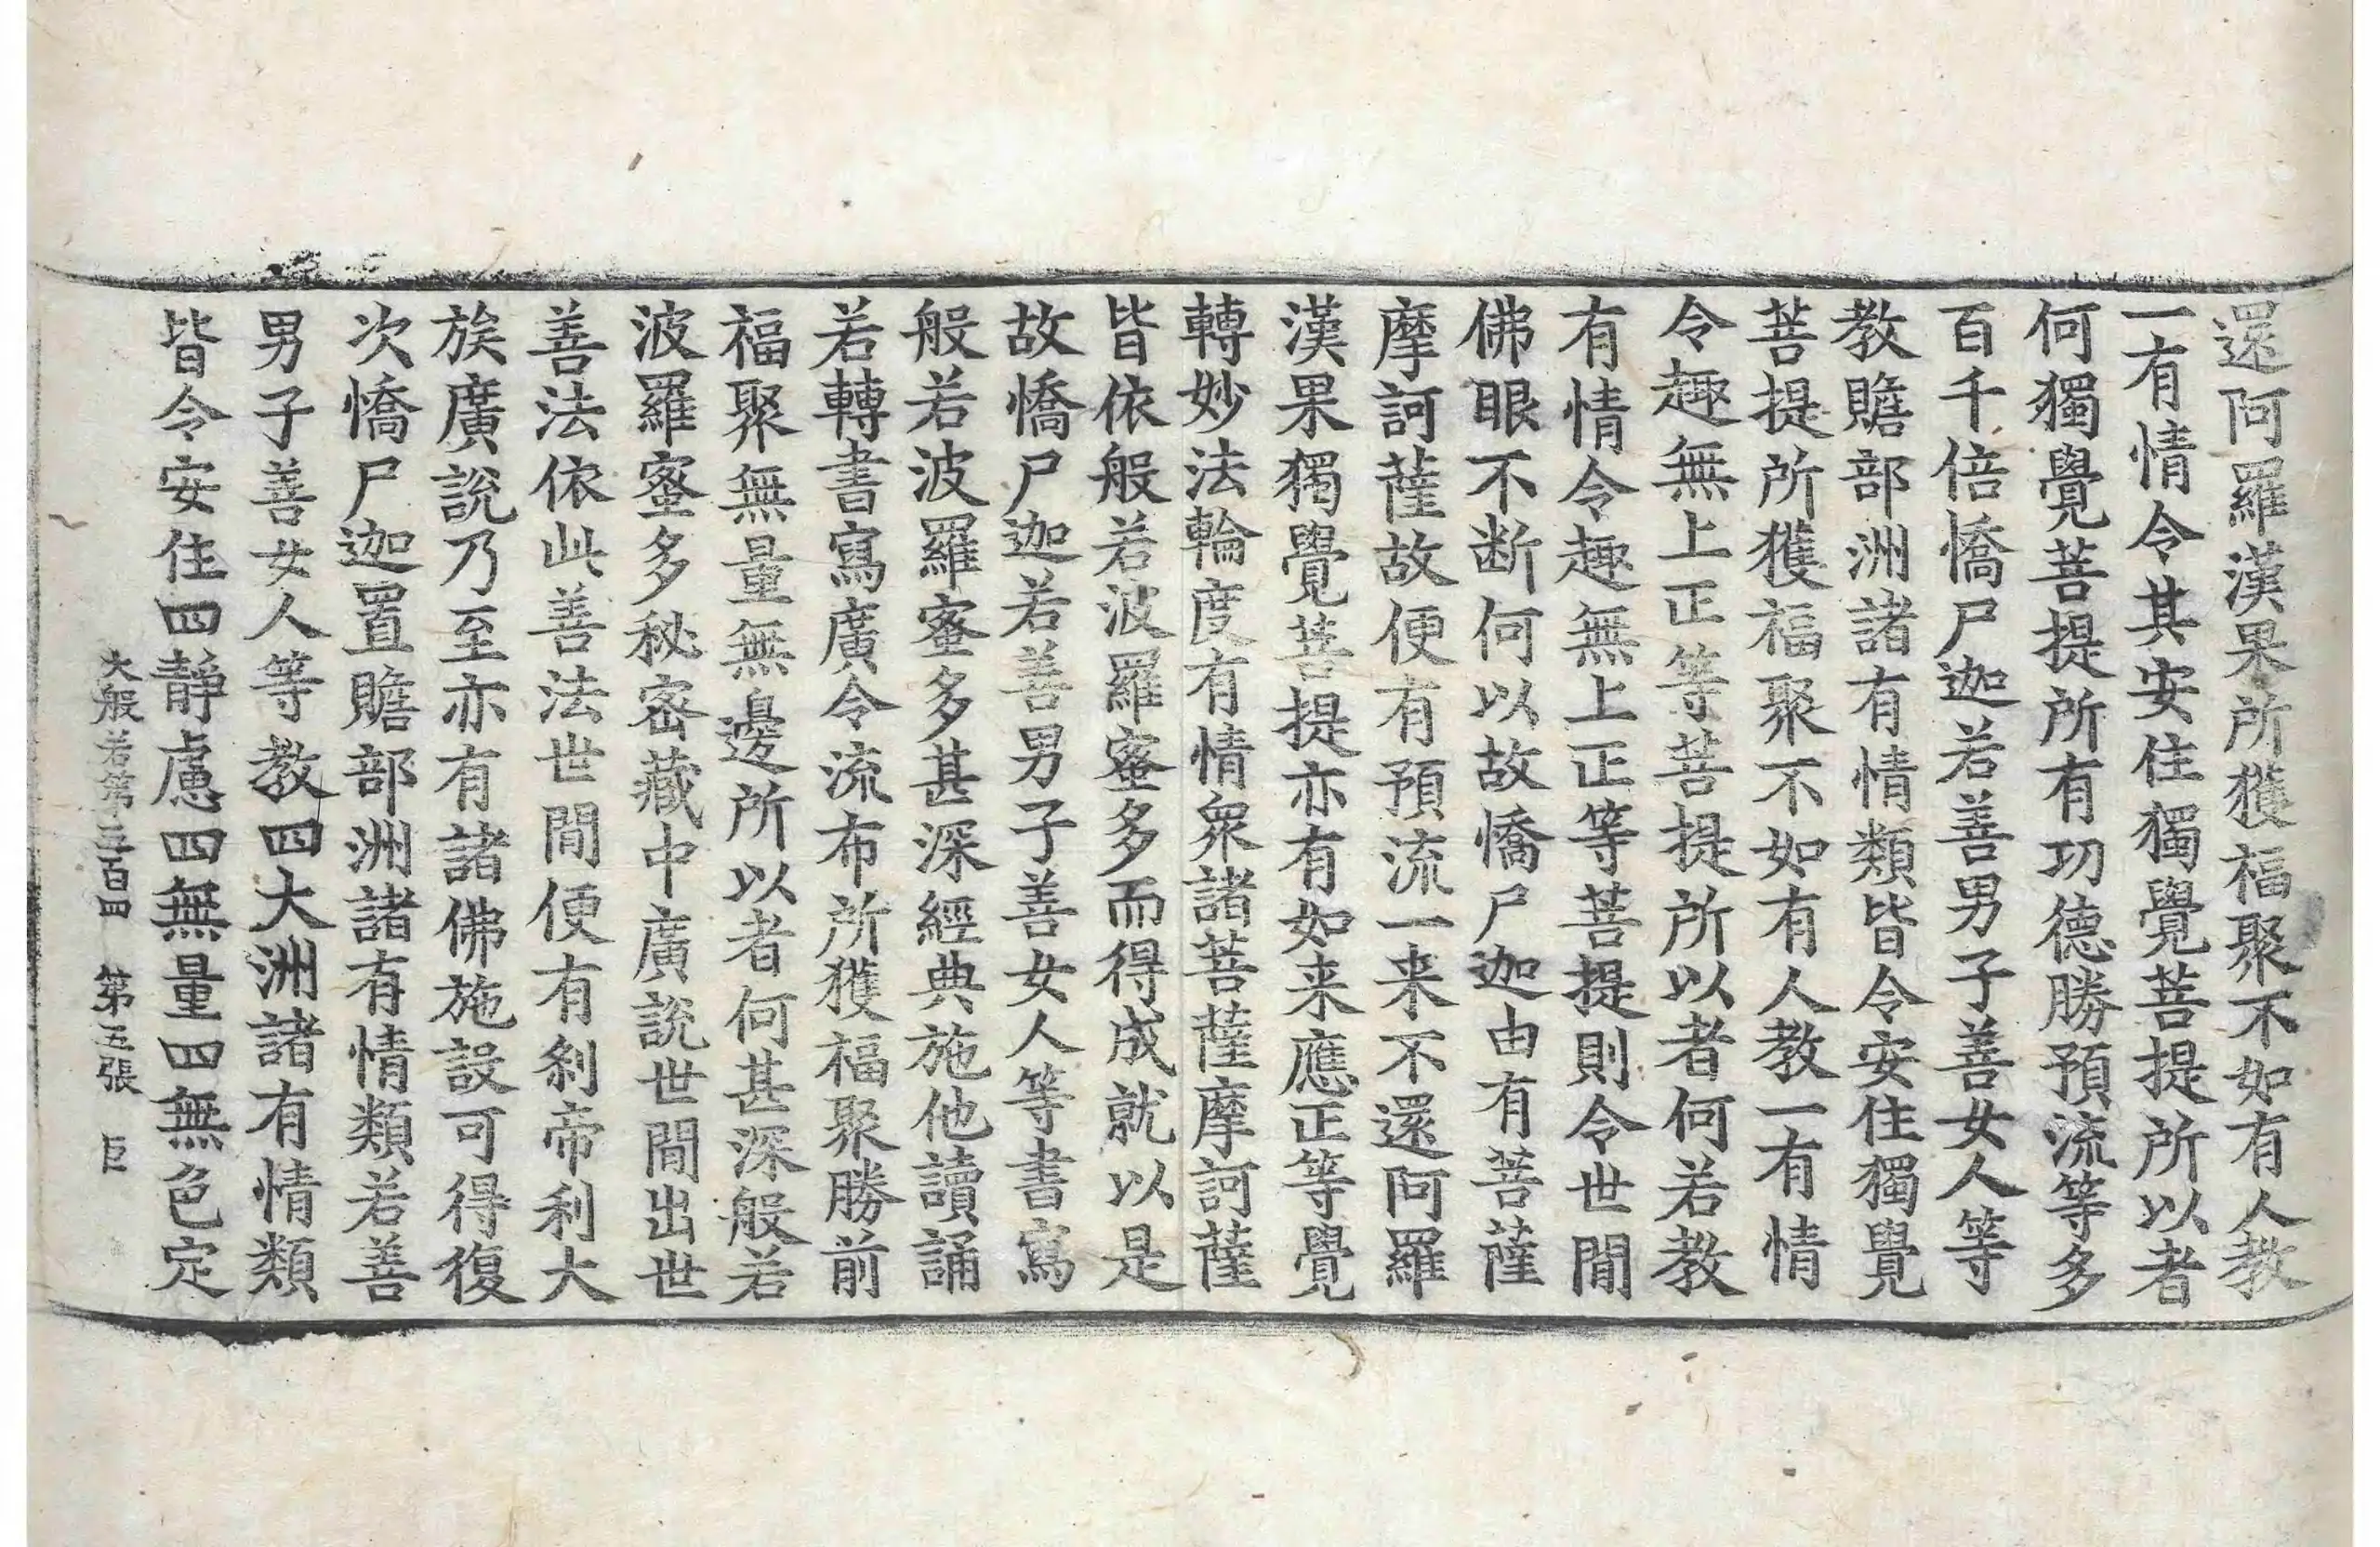 還阿羅漢果所獲福聚不如有人教
一有情令其安住獨覺菩提所以者
何獨覺菩提所有功德勝預流等多
百千倍憍尸迦若善男子善女人等
教贍部洲諸有情類皆令安住獨覺
菩提所獲福聚不如有人教一有情
令趣無上正等菩提所以者何若教
有情令趣無上正等菩提則令世間
佛眼不断何以故憍尸迦由有菩薩
摩訶薩故便有預流一来不還阿羅
漢果獨覺菩提亦有如来應正等覺
轉妙法輪度有情衆諸菩薩摩訶薩
皆依般若波羅蜜多而得成就以是
故憍尸迦若善男子善女人等書寫
般若波羅蜜多甚深經典施他讀誦
若轉書寫廣令流布所獲福聚勝前
福聚無量無邊所以者何甚深般若
波羅蜜多秘密藏中廣說世間出世
善法依此善法世間便有刹帝利大
族廣說乃至亦有諸佛施設可得復
次憍尸迦置贍部洲諸有情類若善
男子善女人等教四大洲諸有情類
皆令安住四靜慮四無量四無色定
大般若第三百四　第五張　巨